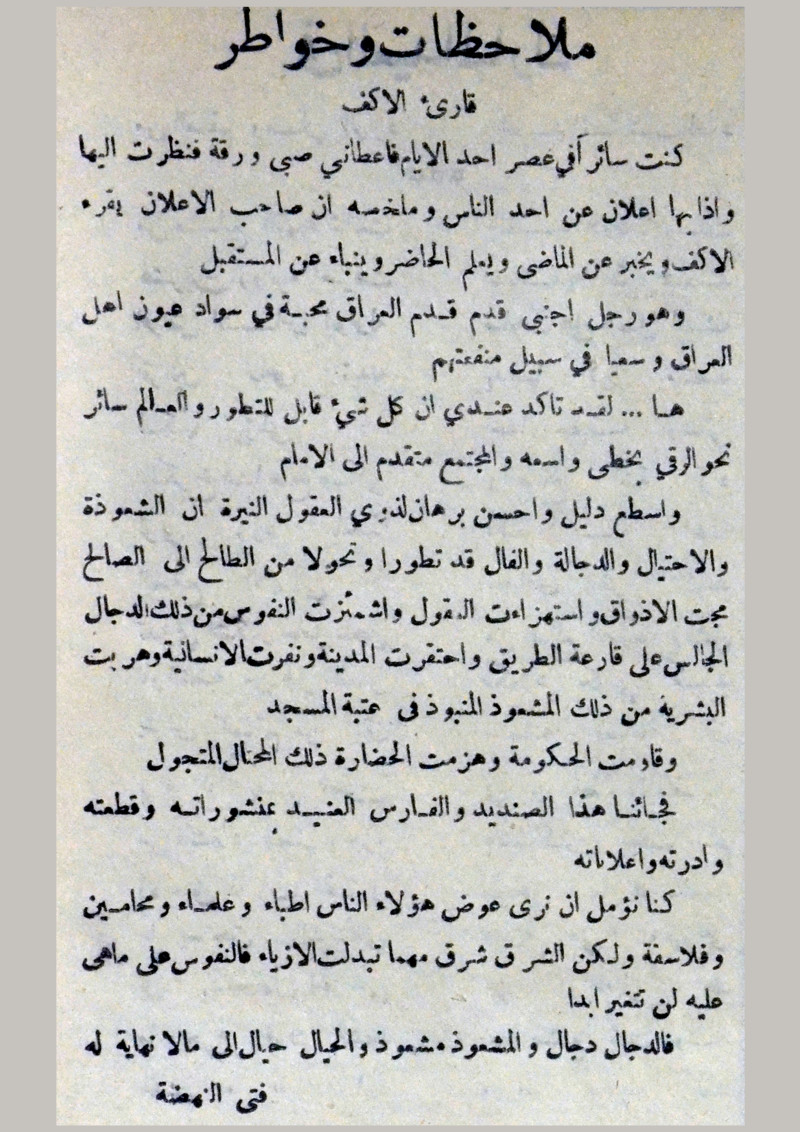 ملاحظات وخواطر
قارئ الاكف
كنت سائراً في عصر احد الايام فاعطاني صبي ورقة فنظرت اليها
واذا بها اعلان عن احد الناس وملخصه ان صاحب الاعلان يقرء
الاكف ويخبر عن الماضي ويعلم الحاضر وينباء عن المستقبل
وهو رجل اجنبي قدم قدم العراق محبة في سواد عيون اهل
العراق وسعيا في سبيل منفعتهم
هـا ... لقد تاكد عندي ان كل شيء قابل للتطور والعالم سائر
نحو الرقي بخطى واسعه والمجتمع متقدم الى الامام
واسطع دليل واحسن برهان لذوي العقول النيرة ان الشعوذة
والاحتيال والدجالة والفال قد تطورا وتحولا من الطالح الى الصالح
مجت الاذواق واستهزاءت العقول واشمئزت النفوس من ذلك الدجال
الجالس على قارعة الطريق واحتقرت المدينة ونفرت الانسانية وهربت
البشرية من ذلك المشعوذ المنبوذ في عتبة المسجد
وقاومت الحكومة وهزمت الحضارة ذلك المحتال المتجول
فجائنا هذا الصنديد والفارس العنيد بمنشوراته وقطعته
وادرته واعلاناته
كنا نؤمل ان نرى عوض هؤلاء الناس اطباء وعلماء ومحامين
وفلاسفة ولكن الشرق شرق مهما تبدلت الازياء فالنفوس على ماهي
عليه لن تتغير ابدا
فالدجال دجال والمشعوذ مشعوذ والحيال حيال الى مالا نهاية له
فتى النهضة